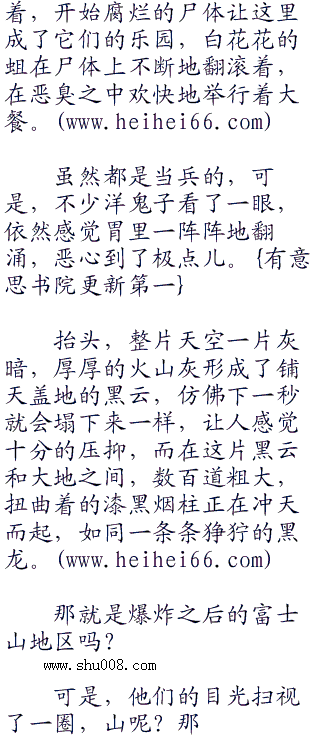 着，开始腐烂的尸体让这里
成了它们的乐园，白花花的
蛆在尸体上不断地翻滚着，
在恶臭之中欢快地举行着大
餐。(www.heihei66.com)
虽然都是当兵的，可
是，不少洋鬼子看了一眼，
依然感觉胃里一阵阵地翻
涌，恶心到了极点儿。{有意
思书院更新第一}
抬头，整片天空一片灰
暗，厚厚的火山灰形成了铺
天盖地的黑云，仿佛下一秒
就会塌下来一样，让人感觉
十分的压抑，而在这片黑云
和大地之间，数百道粗大，
扭曲着的漆黑烟柱正在冲天
而起，如同一条条狰狞的黑
龙。(www.heihei66.com)
那就是爆炸之后的富士
山地区吗？
www.shu008.com
可是，他们的目光扫视
了一圈，山呢？那